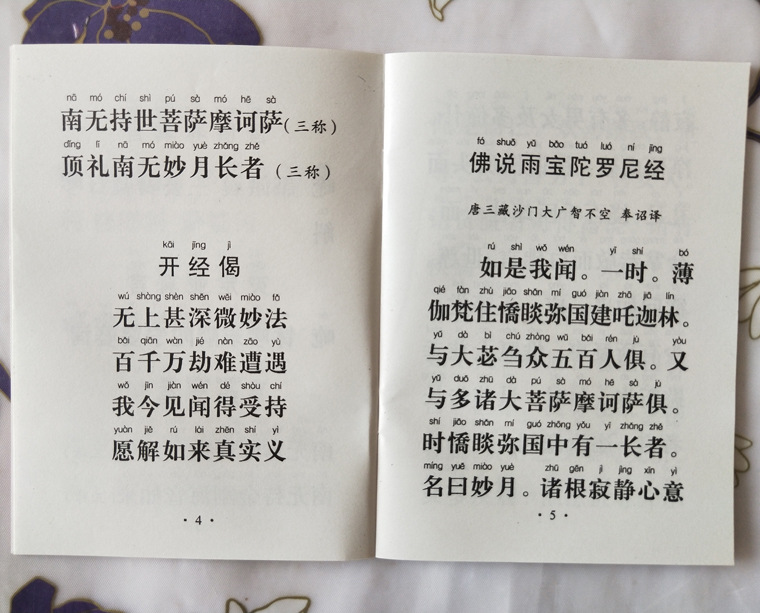 nā mó chí shì pú sà mó hē sà
南无持世菩萨摩诃萨(三称)
dǐng lǐ nā mó miào yuè zhǎng zhě
顶礼南无妙月长者(三称)
kāi jīng jì
开经偈
wú shàng shèn shēn wēi miào fǎ
无上甚深微妙法
bǎi qiān wàn jié nán zāo yù
百千万劫难遭遇
wǒ jīn jiàn wén dé shòu chí
我今见闻得受持
yuàn jiě rú lái zhēn shí yì
愿解如来真实义
·4·
fó shuō yǔ bǎo tuó luó ní jīng
佛说雨宝陀罗尼经
唐三藏沙门大广智不空 奉诏译
rú shì wǒ wén yī shí bó
如是我闻。一时。薄
qié fàn zhù jiāo shǎn mí guó jiàn zhā jiā lín
伽梵住憍睒弥国建吒迦林。
yǔ dà bì chú zhòng wǔ bǎi rén jù yòu
与大苾刍众五百人俱。又
yǔ duō zhū dà pú sà mó hē sà jù
与多诸大菩萨摩诃萨俱。
shí jiāo shǎn mí guó zhōng yǒu yī zhǎng zhě
时憍睒弥国中有一长者。
míng yuē miào yuè zhū gēn jì jìng xīn yì
名曰妙月。诸根寂静心意
·5·